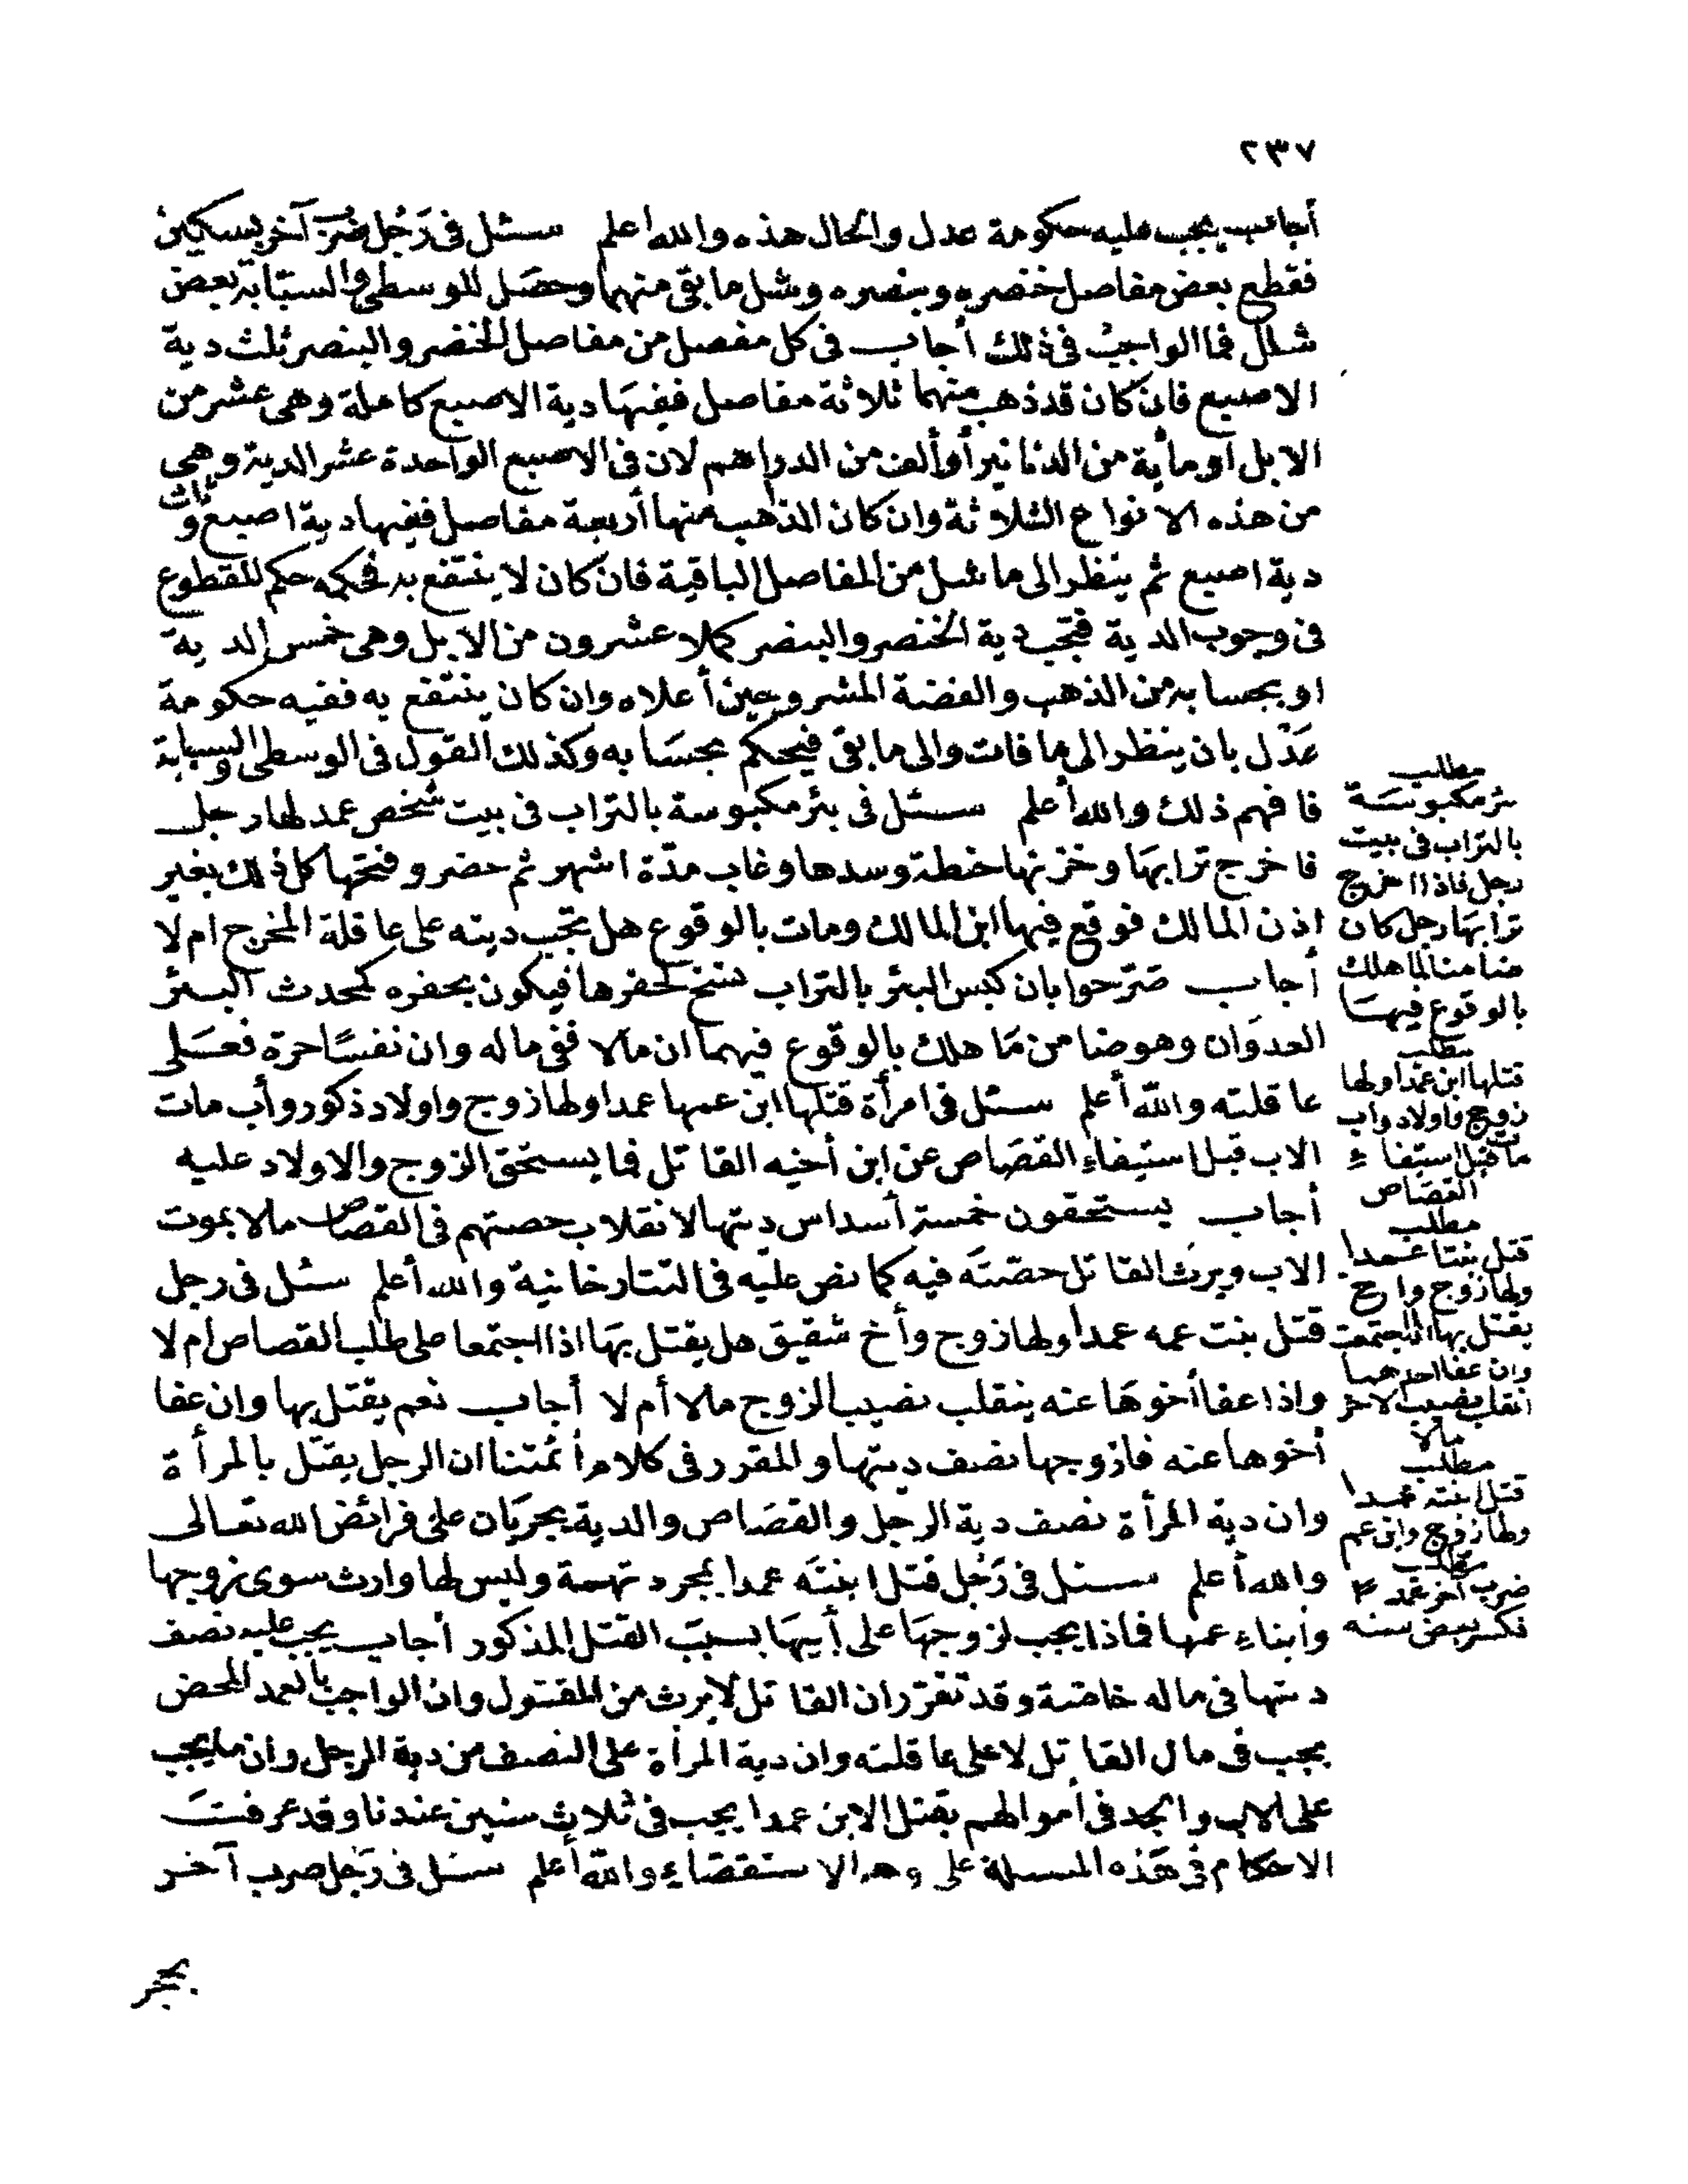 ٢٣٧
أجاب يجب عليه حكومة عدل والحال هذه والله اعلم سئل فى رَجُل ضرب آخر بسكين
فقطع بعض مفاصل خنصره وبنصره وشل ما بقى منهما وحصَل للوسطى والسبّابة بعض
شلل فما الواجب فى ذلك أجاب فى كل مفصل من مفاصل الخنصر والبنصر ثلث دية
الاصبع فان كان قد ذهب منهما ثلاثة مفاصل ففيهَا دية الاصبع كاملة وهى عشر من
الابل او مأية من الدنانير أو ألف من الدراهم لان فى الاصبع الواحدة عشر الدية وهى
من هذه الانواع الثلاثة وان كان الذاهب منها أربعة مفاصل ففيها دية اصبع وثلث
دية اصبع ثم ينظر الى ما شل من المفاصل الباقية فان كان لا ينتفع به فحكمه حكم المقطوع
فى وجوب الدية فتجب دية الخنصر والبنصر كملا عشرون من الابل وهى خمس الدية
او بحسابه من الذهب والفضة المشروحين أعلاه وان كان ينتفع به ففيه حكومة
عَدْل بان ينظر الى ما فات والى ما بقى فيحكم بحسَابه وكذلك القول فى الوسطى والسبابة
فافهم ذلك والله أعلم سئل فى بئر مكبوسة بالتراب فى بيت شخص عمد لها رجل
فاخرج ترابهَا وخزنها حنطة وسدها وغاب مدّة اشهر ثم حضر وفتحها كل ذلك بغير
اذن المالك فوقع فيها ابن المالك ومات بالوقوع هل تجب ديته على عاقلة المخرج ام لا
أجاب صَرّحوا بان كبس البئر بالتراب نسخ لحفرها فيكون بحفره كمحدث البئر
العدوَان وهو ضامن مَا هلك بالوقوع فيهما ان مالا ففى ماله وان نفسًا حرة فعَلى
عاقلته والله أعلم سئل فى امرأة قتلها ابن عمها عمدا ولها زوج واولاد ذكور وأب مات
الاب قبل استيفاء القصَاص عن ابن أخيه القاتل فما يستحق الزوج والاولاد عليه
أجاب يستحقون خمسة أسداس ديتها لانقلاب حصتهم فى القصاص مالا بموت
الاب ويرث القاتل حصّتَه فيه كما نص عليه فى التتارخانية والله أعلم سئل فى رجل
قتل بنت عمه عمدا ولها زوج وأخ شقيق هل يقتل بهَا اذا اجتمعا على طلب القصاص ام لا
واذا عفا أخوهَا عنه ينقلب نصيب الزوج مالا أم لا أجاب نعم يقتل بها وان عفا
أخوها عنه فلزوجها نصف ديتها والمقرر فى كلام أئمتنا ان الرجل يقتل بالمرأة
وان دية المرأة نصف دية الرجل والقصَاص والدية يجريَان على فرائض الله تعالى
والله أعلم سئل فى رَجُل قتل ابنتَه عمدا بمجرد تهمة وليس لها وارث سوى زوجها
وابناء عمها فماذا يجب لزوجهَا على أبيهَا بسبب القتل المذكور أجاب يجب عليه نصف
ديتها فى ماله خاصّة وقد تقرّر ان القاتل لا يرث من المقتول وان الواجب بالعمد المحض
يجب فى مال القاتل لا على عاقلته وان دية المرأة على النصف من دية الرجل وان ما يجب
على الاب والجد فى أموالهم بقتل الابن عمدا يجب فى ثلاث سنين عندنا وقد عرفت
الاحكام فى هَذه المسئلة على وجه الاستقصَاء والله أعلم سئل فى رَجُل ضرب آخر
بحجر
مطلب
بئر مكبوسَة
بالتراب فى بيت
رجل فاذا اخرج
ترابهَا رجل كان
ضامنا لما هلك
بالوقوع فيهَا
مطلب
قتلها ابن عمها ولها
زوج واولاد واب
مات قبل استيفاء
القصَاص
مطلب
قتل بنتا عمدا
ولها زوج واخ
يقتل بها اذا اجتمعت
وان عفا احدهما
انقلب نصيب الاخر
مالا
مطلب
قتل ابنته عمدا
ولها زوج وابن عم
مطلب
ضرب آخر عمدا
فكسر بعض سنه